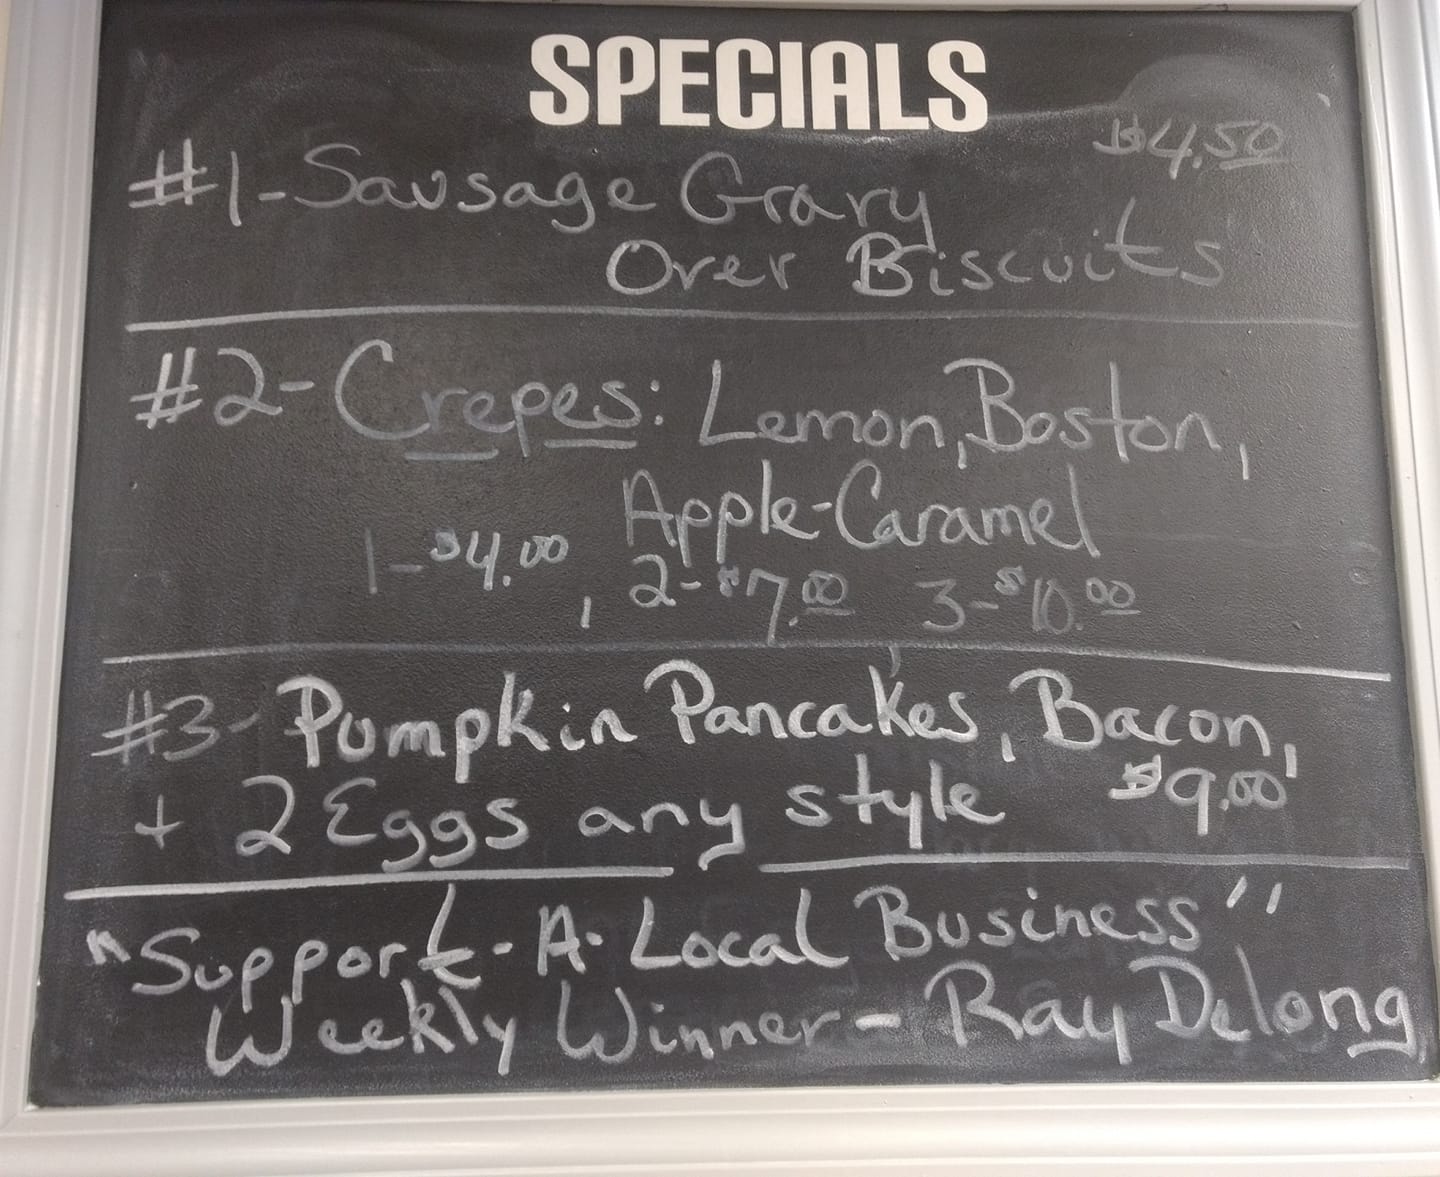 SPECIALS
$4.50
#1-Sausage Gravy
Over Biscuits
#2-Crepes: Lemon, Boston,
Apple-Caramel
1-$4.00, 2-$7.00 3-$10.00
#3-Pumpkin Pancakes, Bacon,
+ 2 Eggs any style $9.00
"Support-A-Local Business"
Weekly Winner-Ray Delong